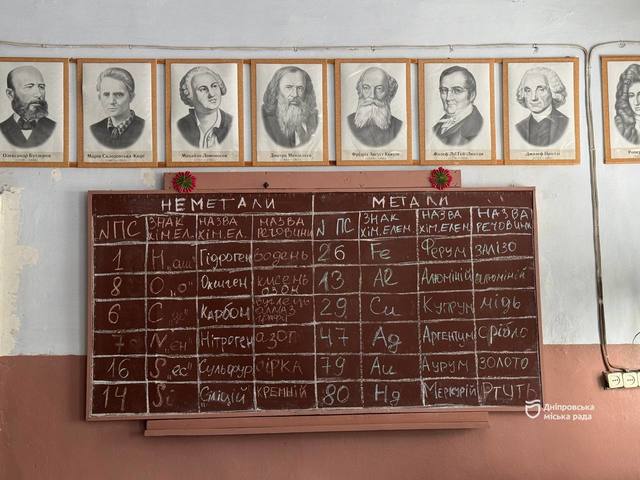 Олександр Бутлеров Марія Склодовська-Кюрі Михайло Ломоносов Дмитро Менделєєв Фрідріх Август Кекуле Жозеф Луї Гей-Люссак Джозеф Прістлі
НЕМЕТАЛИ МЕТАЛИ
N ПС ЗНАК ХІМ.ЕЛ. НАЗВА ХІМ.ЕЛ. НАЗВА РЕЧОВИНИ N ПС ЗНАК ХІМ.ЕЛЕМ. НАЗВА ХІМ.ЕЛЕМ. НАЗВА РЕЧОВИНИ
1 H „аш" Гідроген водень 26 Fe Ферум залізо
8 O „о" Оксиген кисень озон 13 Al Алюміній алюміній
6 C „це" Карбон вуглець алмаз графіт 29 Cu Купрум мідь
7 N „ен" Нітроген азот 47 Ag Аргентум срібло
16 S „ес" Сульфур сірка 79 Au Аурум золото
14 Si „Сіліцій" кремній 80 Hg Меркурій Ртуть
Дніпровська
міська рада